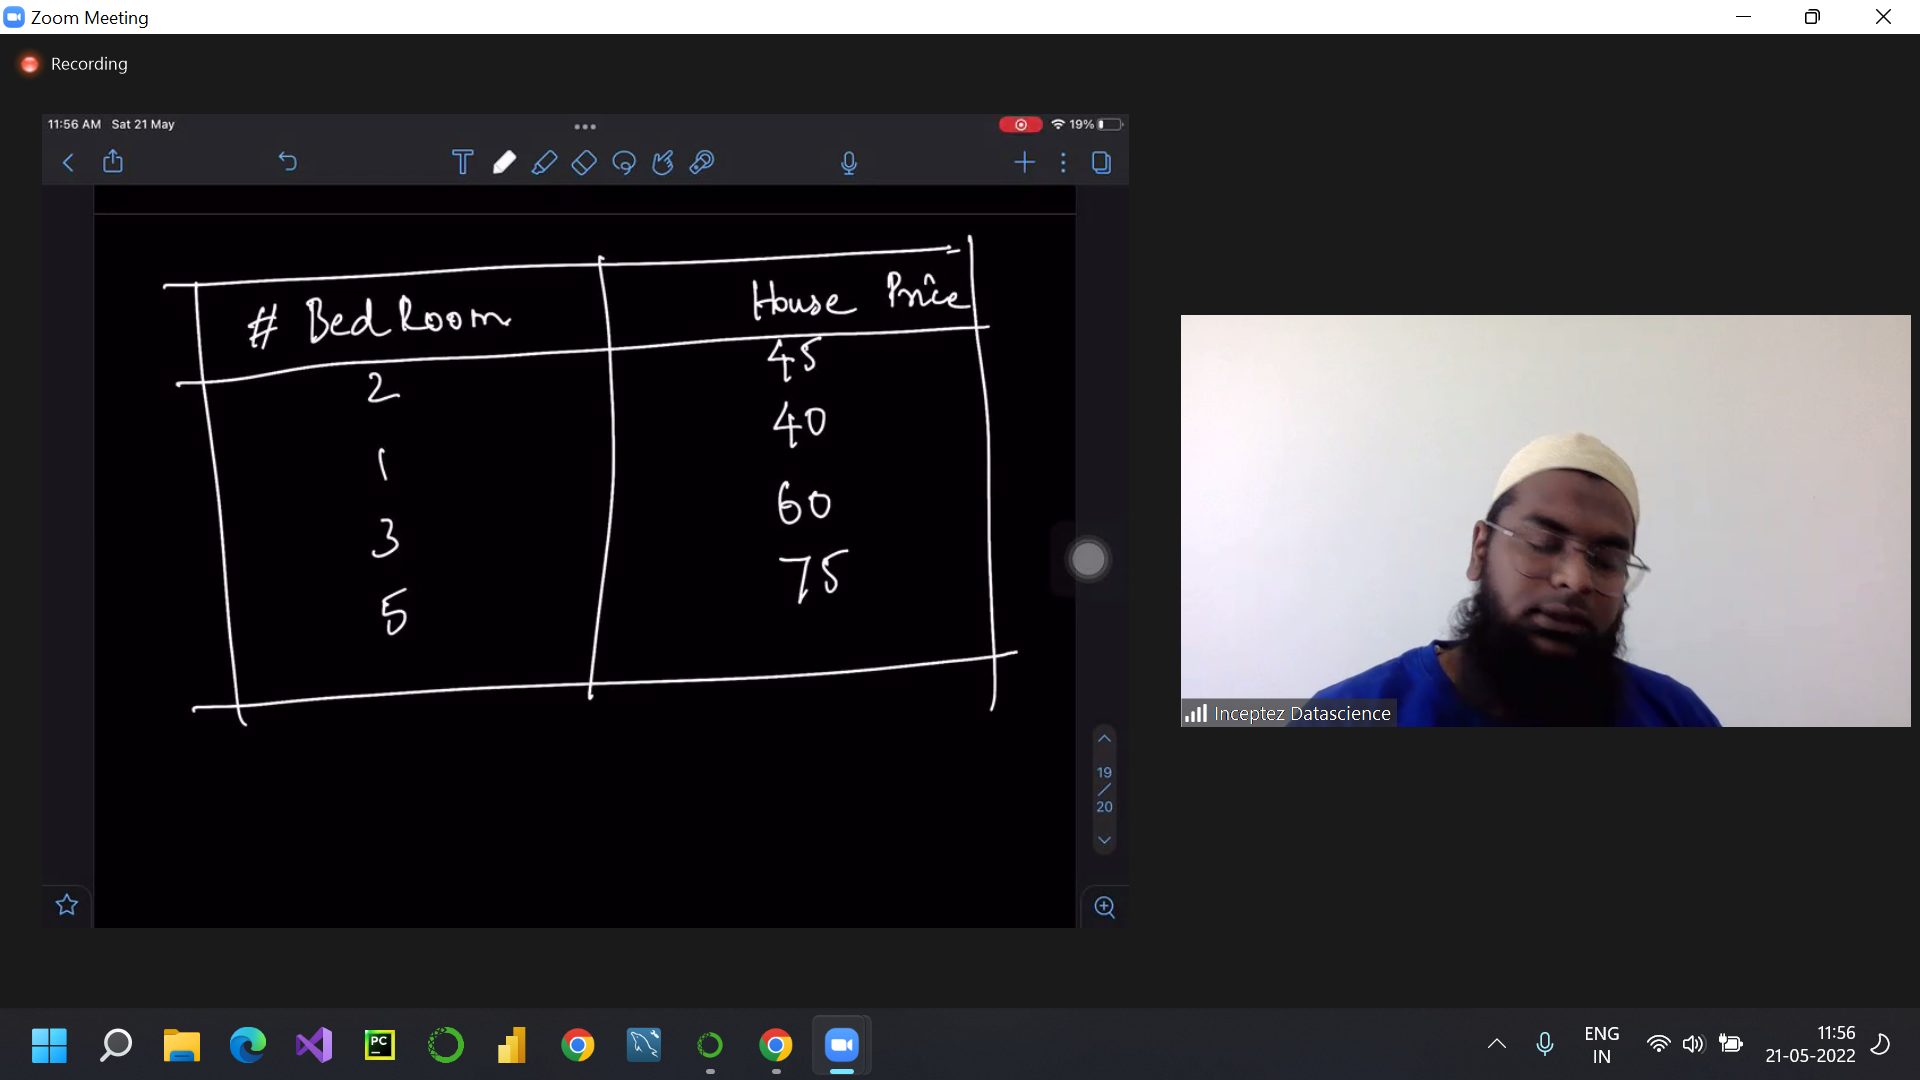 Zoom Meeting
Recording
11:56 AM Sat 21 May
19%
T
# BedRoom House Price
2 45
1 40
3 60
5 75
19
/
20
Inceptez Datascience
PC
ENG
IN
11:56
21-05-2022